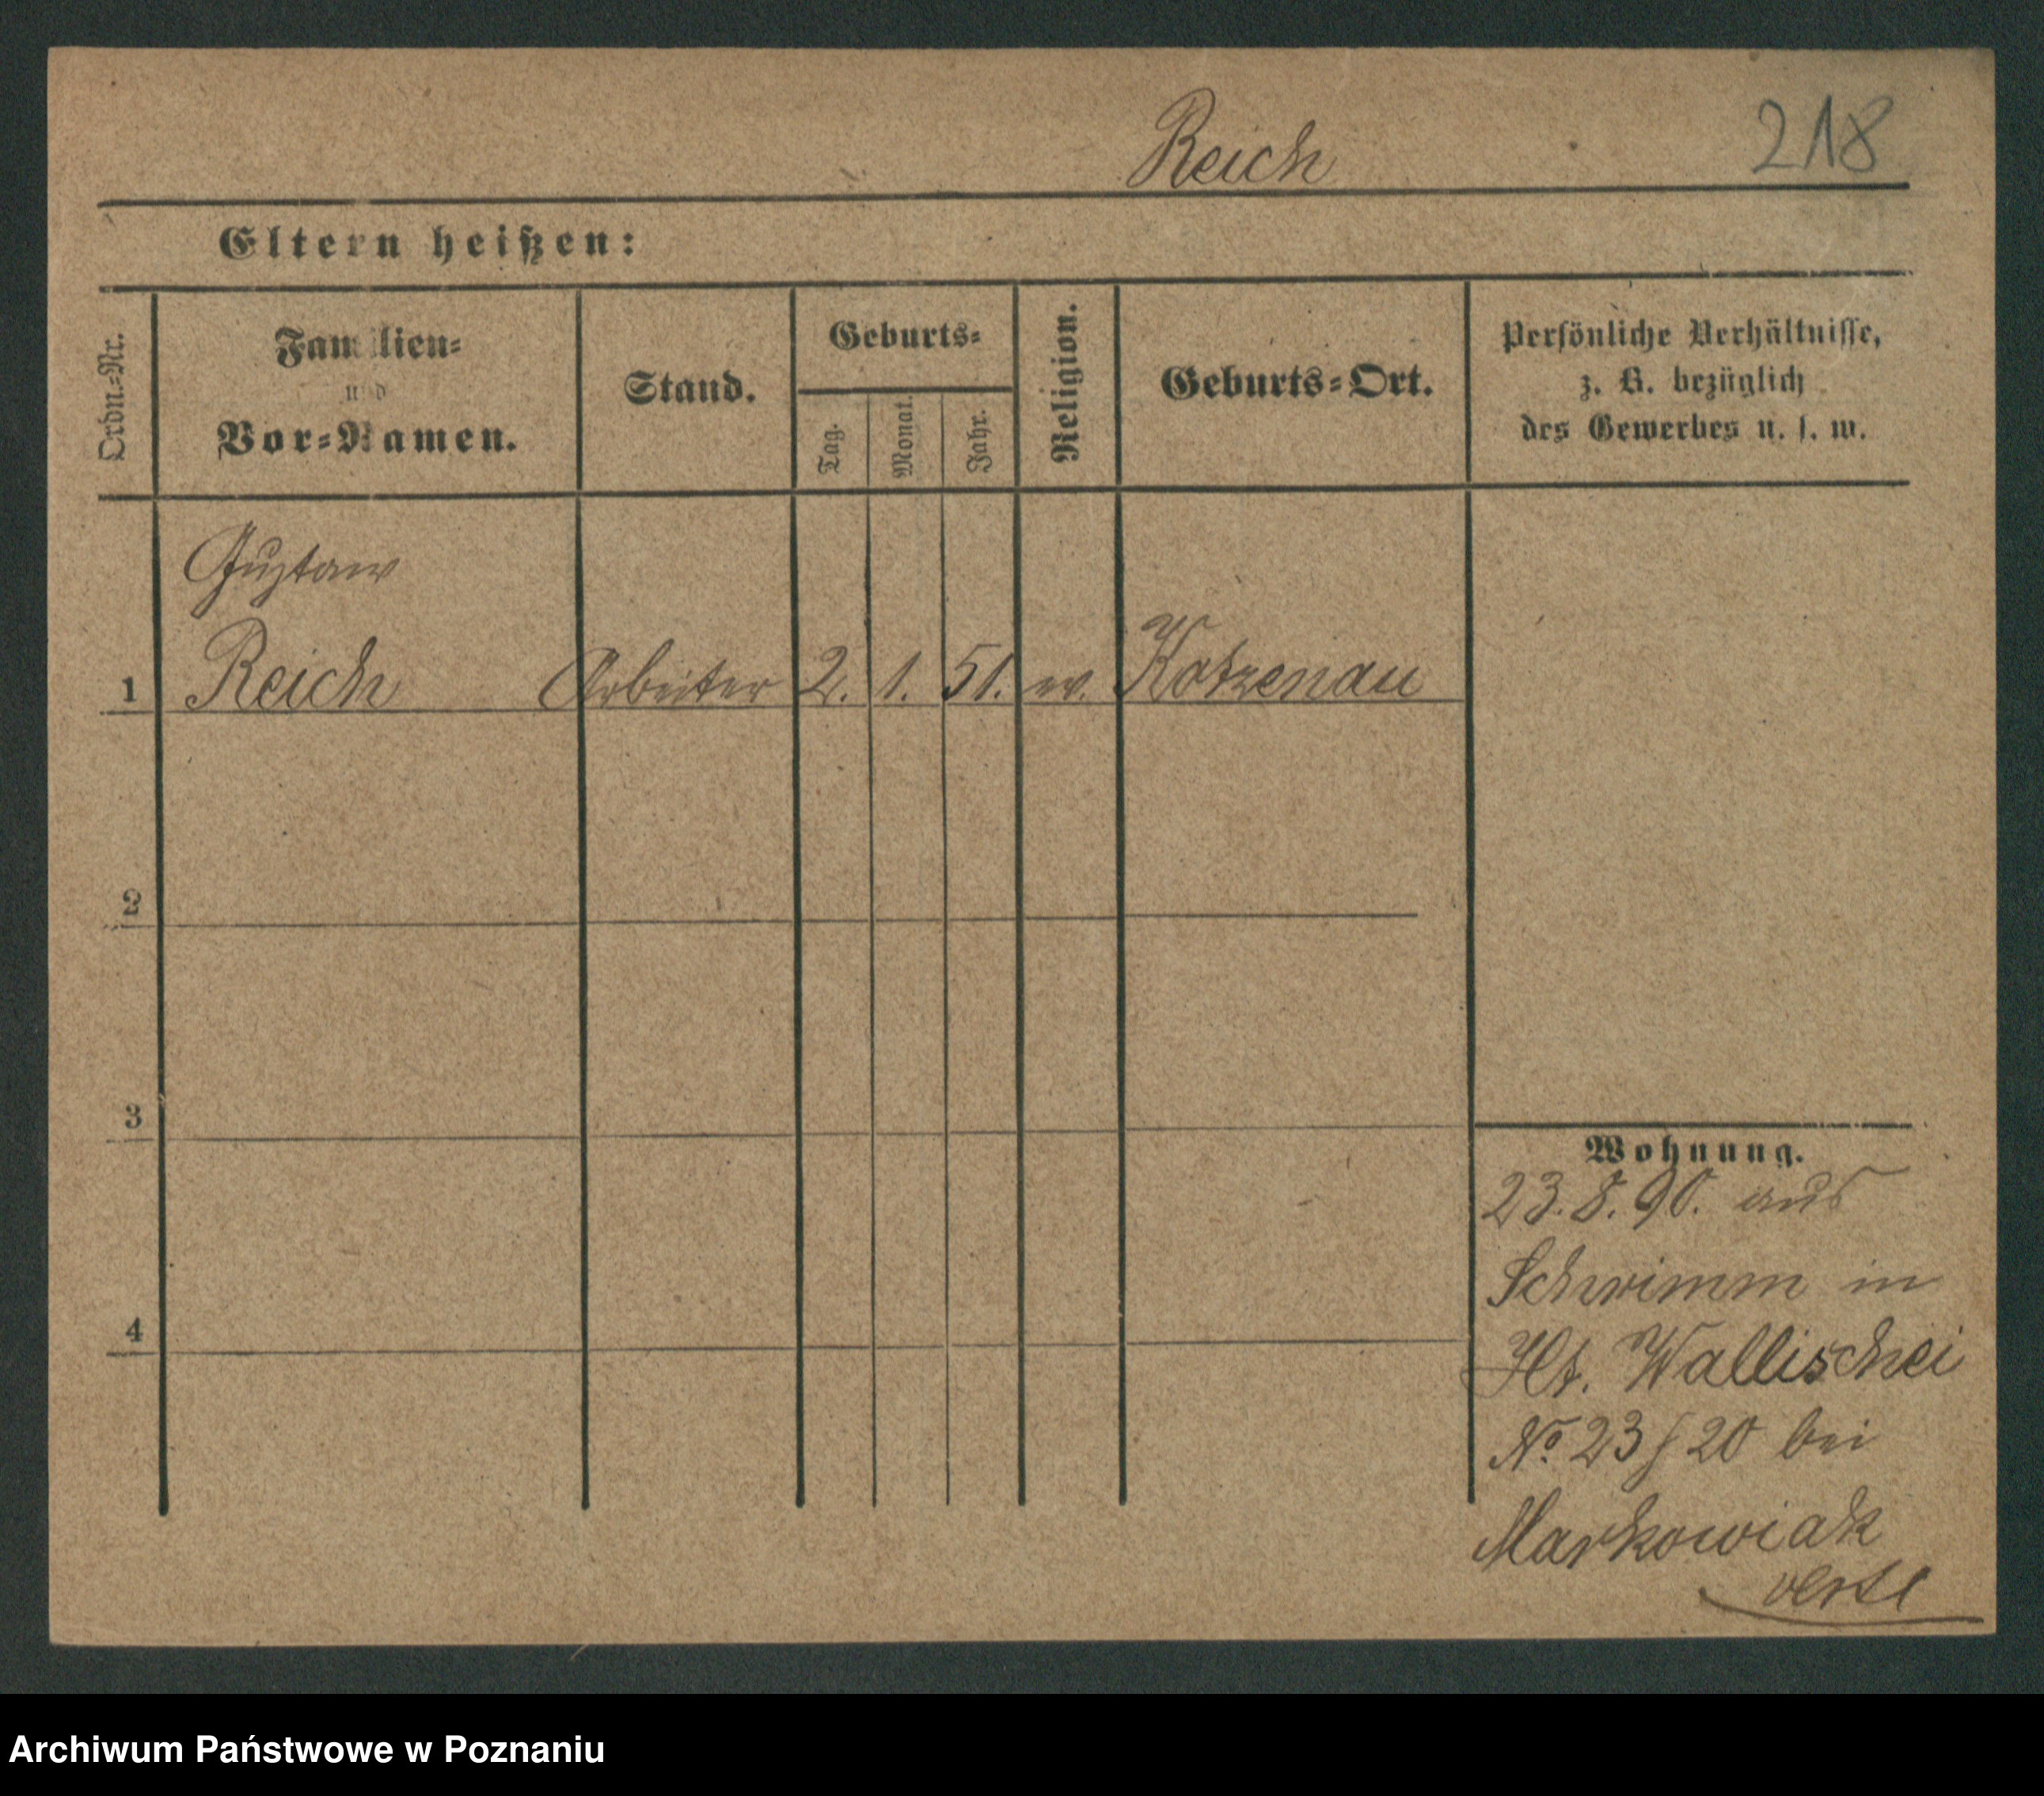 Reich
218
Eltern heißen:
Ordn.-Nr.
Familien-
und
Vor-Namen.
Stand.
Geburts-
Tag.
Monat.
Jahr.
Religion.
Geburts-Ort.
Persönliche Verhältnisse,
z. B. bezüglich
des Gewerbes u. s. w.
Gustaw
1 Reich Arbeiter 2. 1. 51. ev. Kotzenau
2
3
4
Wohnung.
23. 8. 90. aus
Schwimm in
Wallischei
No. 23/20 bei
Markowiak
verte
Archiwum Państwowe w Poznaniu